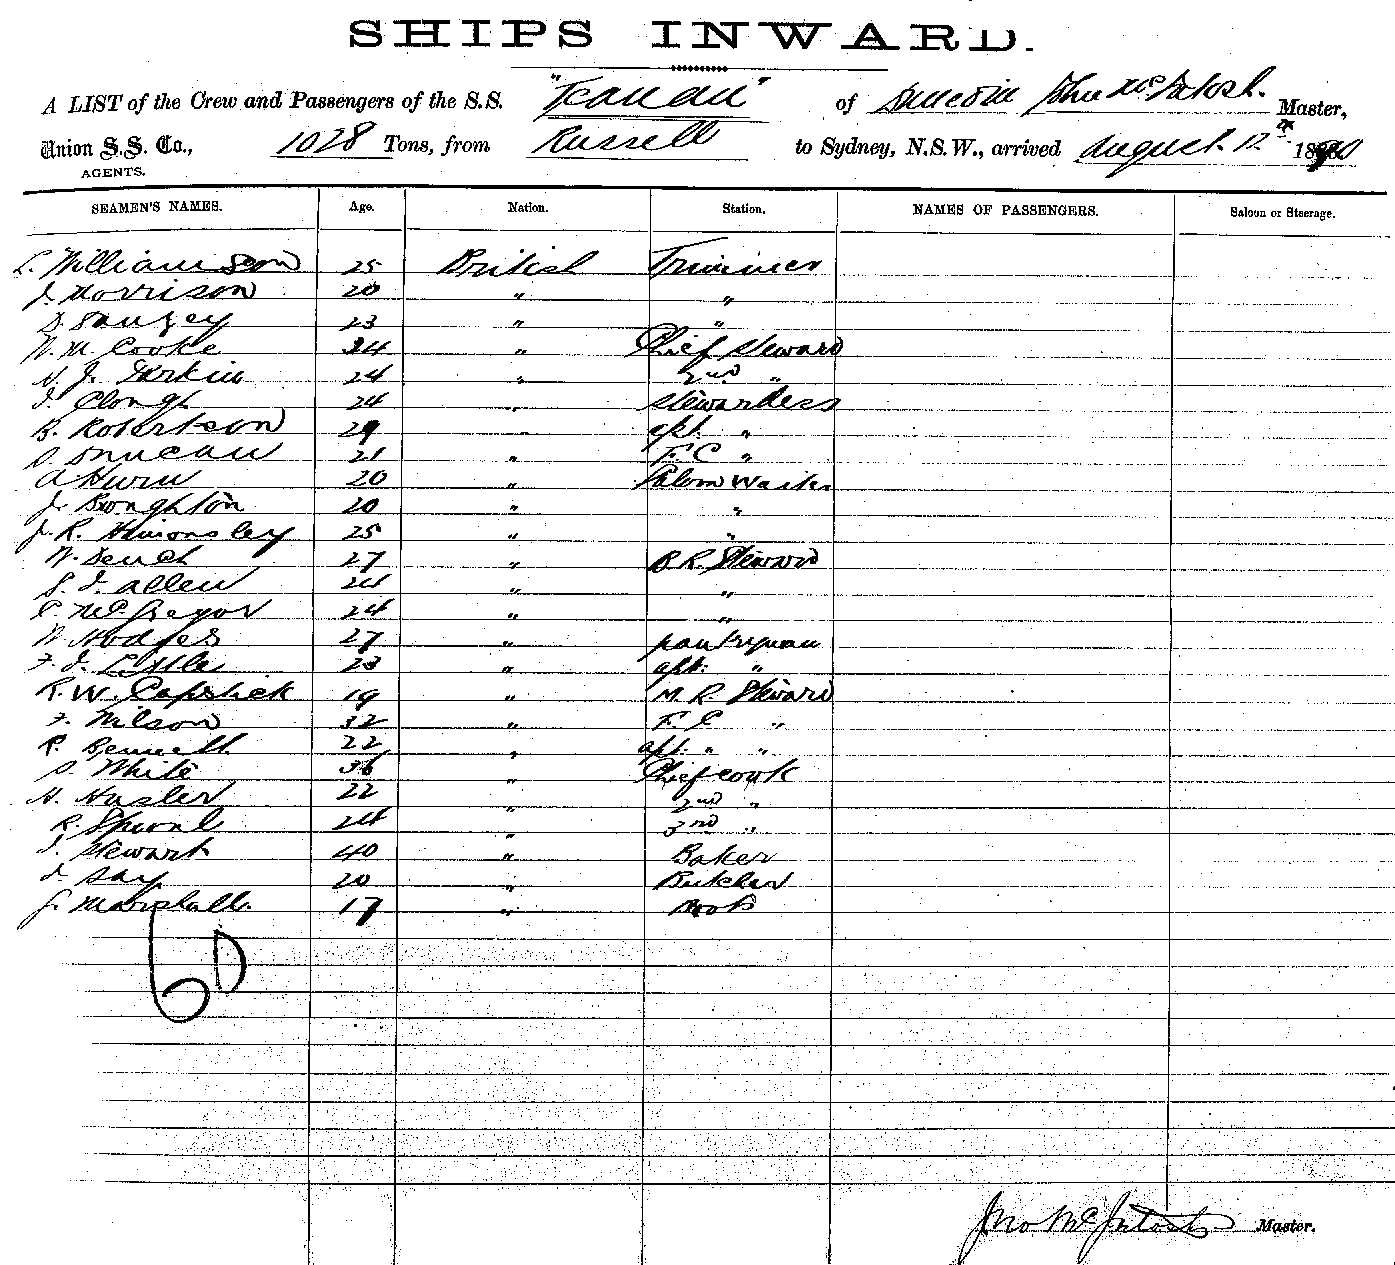 SHIPS INWARD.
A LIST of the Crew and Passengers of the S.S. "Te Anau" of Dunedin John McIntosh. Master,
Union S.S. Co., 1028 Tons, from Russell to Sydney, N.S.W., arrived August 12th 1890
AGENTS.
SEAMEN'S NAMES. Age. Nation. Station. NAMES OF PASSENGERS. Saloon or Steerage.
L. Williamson 25 British Trimmer
J. Morrison 20 " "
D. 23 " "
W. M. Cooke 34 " Chief Steward
J. 24 " 2nd "
Clough 24 " Stewardess
B. Robertson 29 " asst. "
Duncan 21 " F. C "
A 20 " Saloon Waiter
J. Boughton 20 " "
J. R. 25 " "
W. Dench 27 " B. R. Steward
Allen 24 " "
McGregor 24 " "
W. Hodges 27 " pantryman
Little 23 " asst. "
R. W. Capstick 19 " M. R. Steward
Wilson 32 " F. C "
R. Bennett 22 " asst. " "
White 36 " Chief cook
H. Hasler 22 " 2nd "
R. 24 " 3rd "
Stewart 40 " Baker
Day 20 " Butcher
J. Marshall. 17 " Boots
60
Jno McIntosh Master.